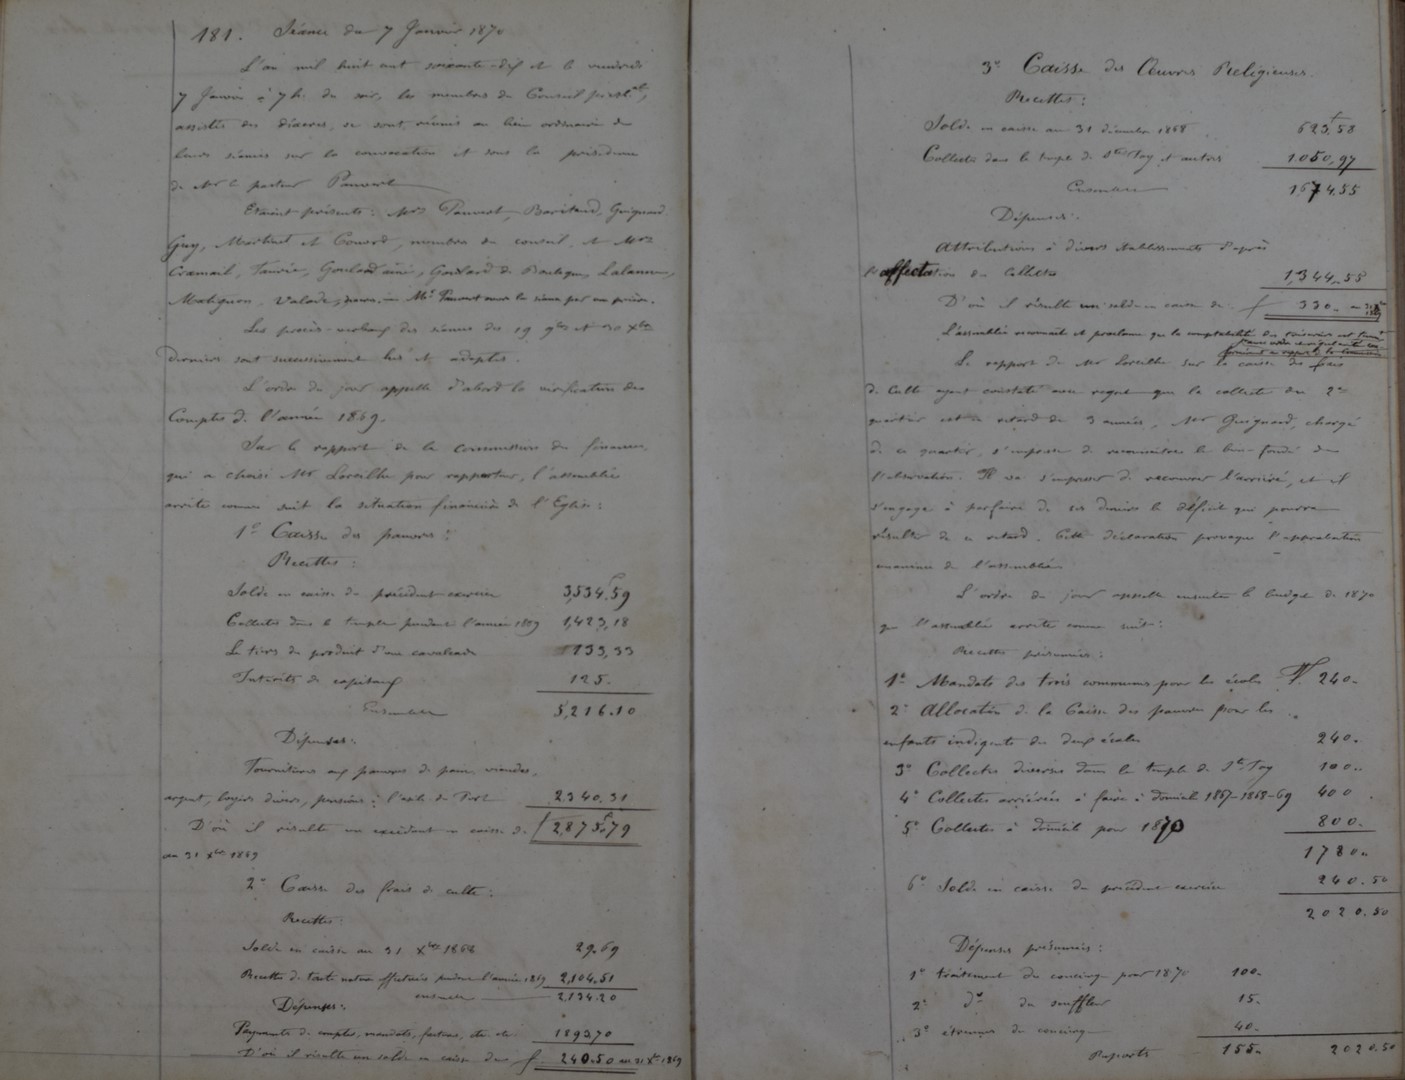 181. Séance du 7 Janvier 1870
L'an mil huit cent soixante-dix et le vendredi
7 Janvier à 7 h. du soir, les membres du Conseil presb.al,
assistés des diacres, se sont réunis au lieu ordinaire de
leurs séances sur la convocation et sous la présidence
de Mr le pasteur Pauvert
Etaient présents: Mrs Pauvert, Baritaud, Guignard
Guy, Martinet et Conord, membres du conseil, et Mrs
Cramail, Goulard aîné, Goulard de Boulogne, Lalanne,
Matignon, Valade, diacres. Mr Pauvert ouvre la séance par une prière.
Les procès-verbaux des séances des 19 9bre et 30 Xbre
derniers sont successivement lus et adoptés.
L'ordre du jour appelle d'abord la vérification des
Comptes de l'année 1869.
Sur le rapport de la commission des finances,
qui a choisi Mr Loreilhe pour rapporteur, l'assemblée
arrête comme suit la situation financière de l'Eglise:
1° Caisse des pauvres:
Recettes:
Solde en caisse du précédent exercice 3,534.59
Collectes dans le temple pendant l'année 1869 1,423,18
Le tiers du produit d'une cavalcade 133,33
Intérêts de capitaux 125.
Ensemble 5,216.10
Dépenses:
Fournitures aux pauvres de pain, viandes,
argent, loyers divers, pensions à l'asile de 2.340.31
D'où il résulte un excédant en caisse de f 2,875.79
au 31 Xbre 1869
2° Caisse des frais de culte:
Recettes:
Solde en caisse au 31 Xbre 1868 29.69
Recettes de toute nature effectuées pendant l'année 1869 2,104.51
ensemble 2,134.20
Dépenses:
Payements de comptes, mandats, factures, etc. etc 1893.70
D'où il résulte un solde en caisse de f 240.50 au 31 Xbre 1869
3° Caisse des Œuvres Religieuses.
Recettes:
Solde en caisse au 31 décembre 1868 623,58
Collectes dans le temple de Ste Foy et autres 1.050,97
Ensemble 1674.55
Dépenses:
Attributions à divers établissements d'après
l'affectation des collectes 1,344.55
D'où il résulte un solde en caisse de f 330.
L'assemblée reconnait et proclame que la comptabilité des
Le rapport de Mr Loreilhe sur la caisse des frais
de Culte ayant constaté avec regret que la collecte du 2e
quartier est en retard de 3 années, Mr Guignard, chargé
de ce quartier, s'empresse de reconnaître le bien fondé de
l'observation. Il va s'empresser de recouvrer l'arriéré, et il
s'engage à parfaire de ses deniers le déficit qui pourra
résulter de ce retard. Cette déclaration provoque l'approbation
unanime de l'assemblée.
L'ordre du jour appelle ensuite le budget de 1870
que l'assemblée arrête comme suit:
Recettes présumées:
1° Mandats des trois communes pour les écoles f. 240.
2° Allocation de la Caisse des pauvres pour les
enfants indigents des deux écoles 240.
3° Collectes diverses dans le temple de Ste Foy 100.
4° Collectes arriérées à faire à domicile 1867-1868-69 400
5° Collectes à domicile pour 1870 800.
1780.
6° Solde en caisse du précédent exercice 240.50
2020.50
Dépenses présumées:
1° traitement du concierge pour 1870 100.
2° do du souffleur 15.
3° étrennes du concierge 40.
Reports 155. 2020.50